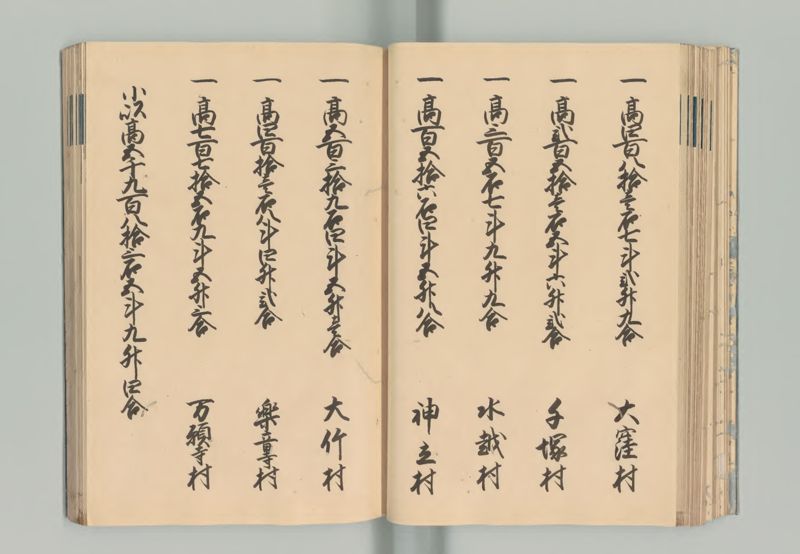 一 高四百八拾壱石七斗弐升九合 大窪村
一 高弐百五拾壱石五斗六升弐合 千塚村
一 高三百五石七斗九升九合 水越村
一 高百五拾六石四斗五升八合 神立村
一 高五百三拾九石四斗五升壱合 大竹村
一 高四百拾壱石八斗四升弐合 楽音寺村
一 高七百七拾五石九斗五升三合 万願寺村
小以高五千九百八拾三石五斗九升四合